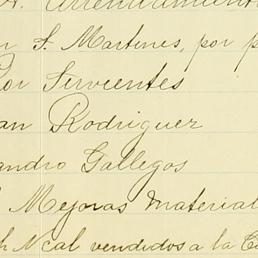 Arrendamient
n S. Martines, por p
or Servientes
an Rodriguez
andro Gallegos
Mejoras material
h N cal vendidos a la C